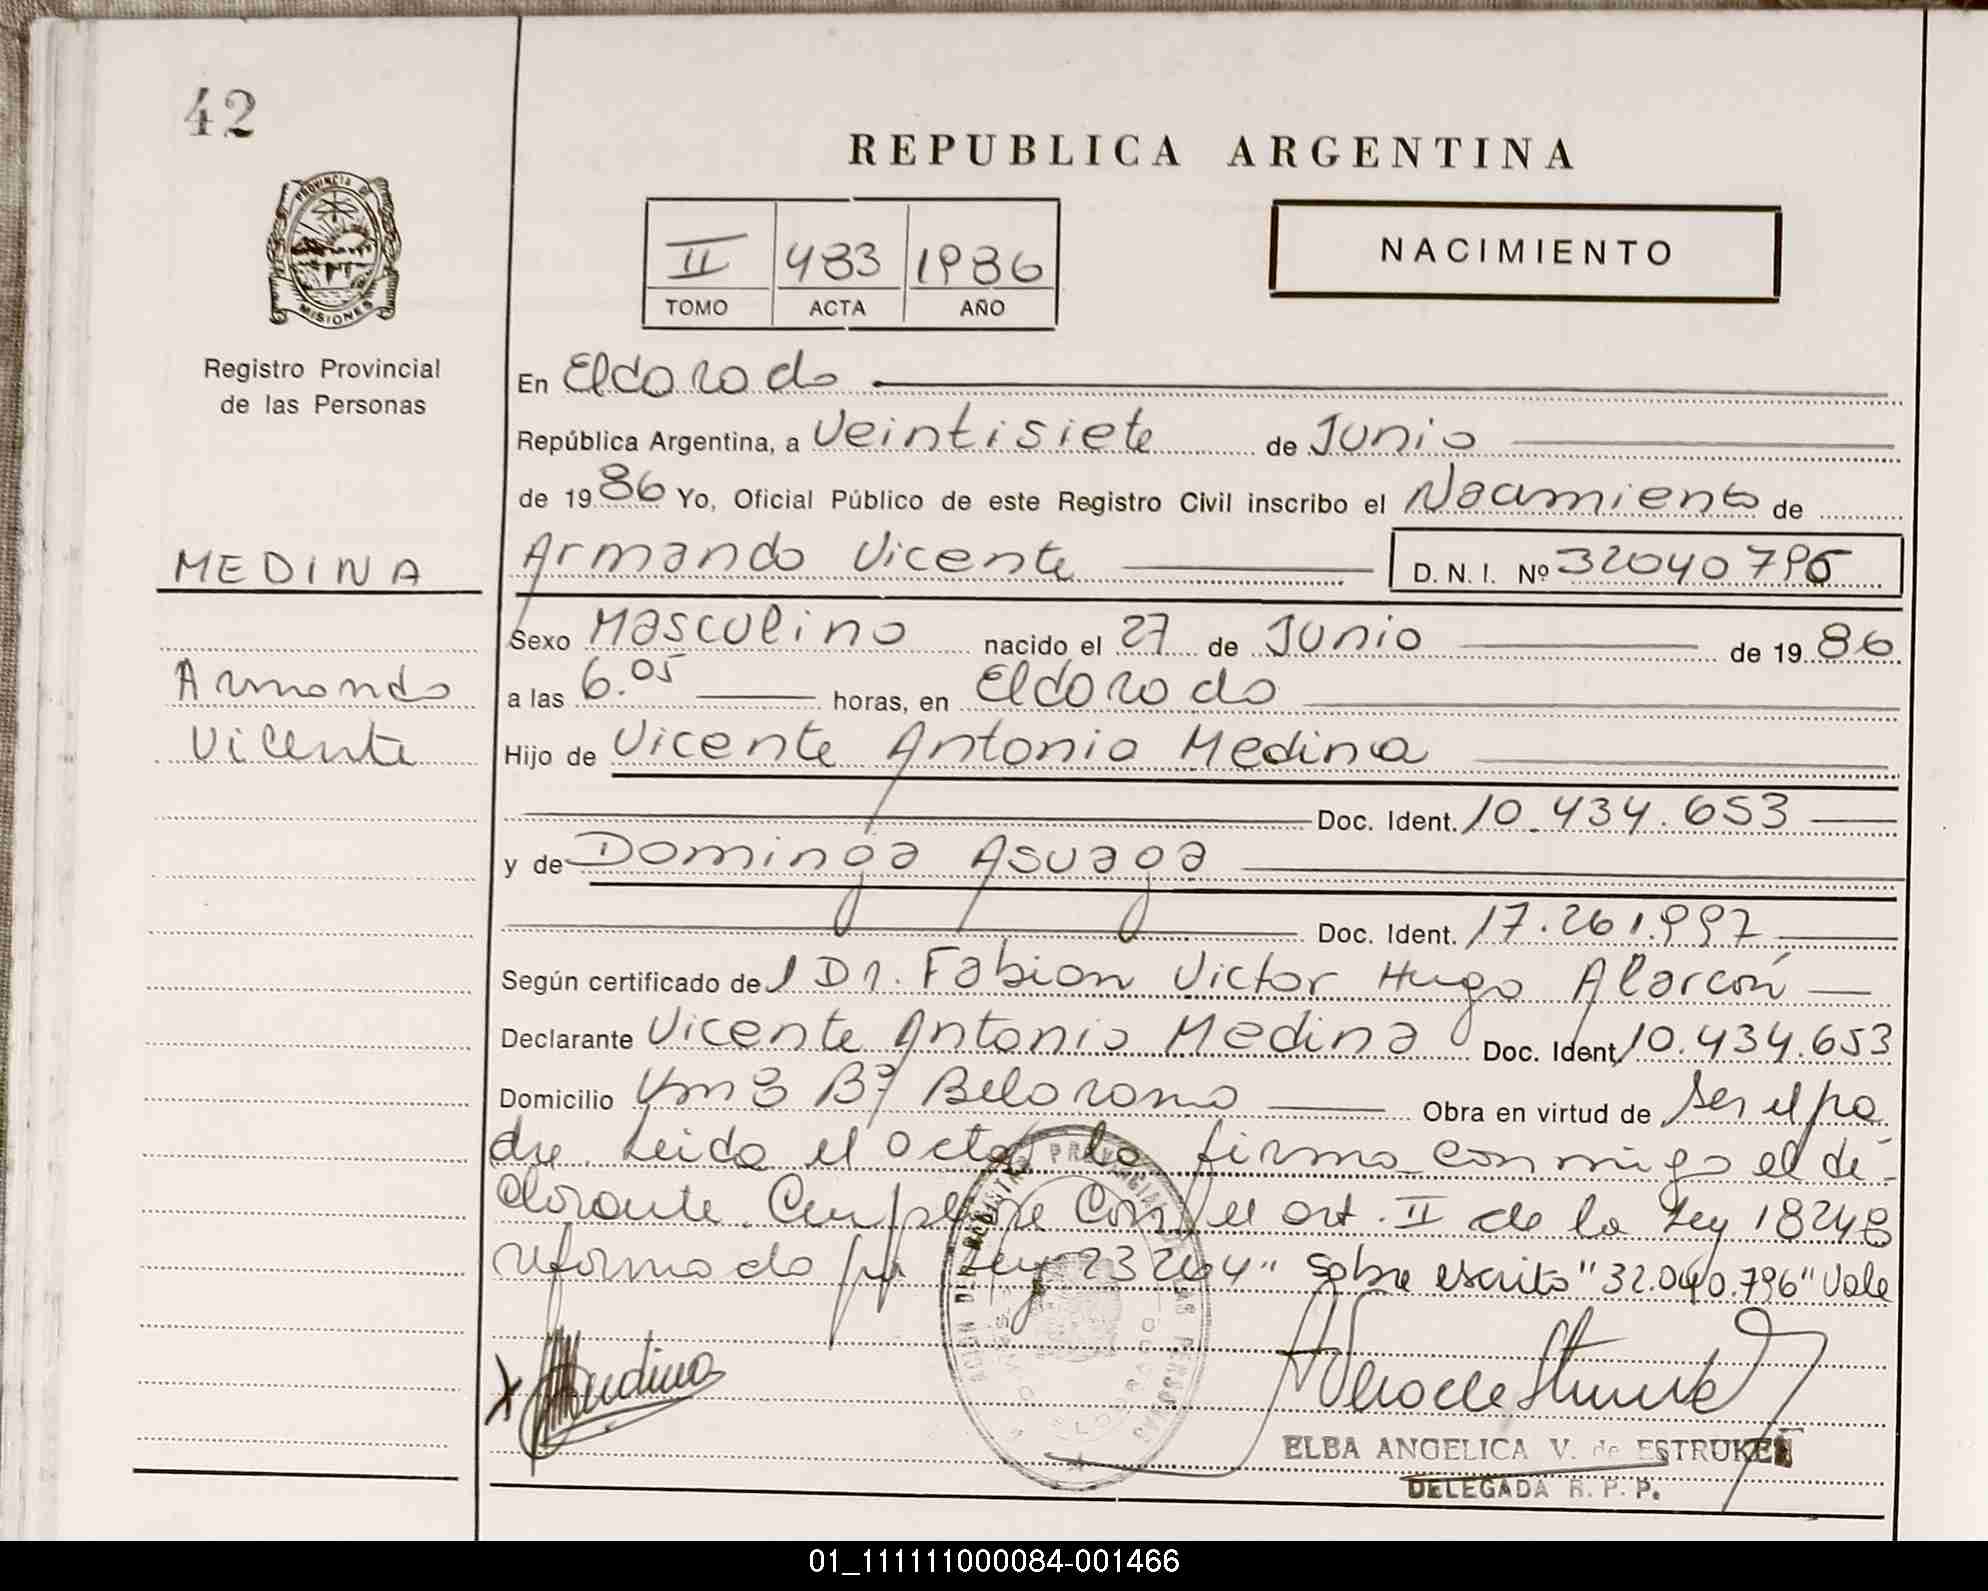 42
REPUBLICA ARGENTINA
II 483 1986
TOMO ACTA AÑO
NACIMIENTO
PROVINCIA DE
MISIONES
Registro Provincial
de las Personas
MEDINA
Armando
Vicente
En Eldorado
República Argentina, a Veintisiete de Junio
de 1986 Yo, Oficial Público de este Registro Civil inscribo el Nacimiento de
Armando Vicente D.N.I. Nº 32040796
Sexo Masculino nacido el 27 de Junio de 1986
a las 6.05 horas, en Eldorado
Hijo de Vicente Antonio Medina
Doc. Ident. 10.434.653
y de Dominga Asuaga
Doc. Ident. 17.261.997
Según certificado del Dr. Fabian Victor Hugo Alarcón
Declarante Vicente Antonio Medina Doc. Ident. 10.434.653
Domicilio Km 3 Bº Belgrano Obra en virtud de ser el pa
dre. Leida el acta la firma conmigo el de-
clarante. Cumplese con el art. II de la Ley 18248
reformado por Ley 23264" sobre escrito "32.040.796" Vale
Medina
ELBA ANGELICA V. de ESTRUKEN
DELEGADA R. P. P.
01_111111000084-001466